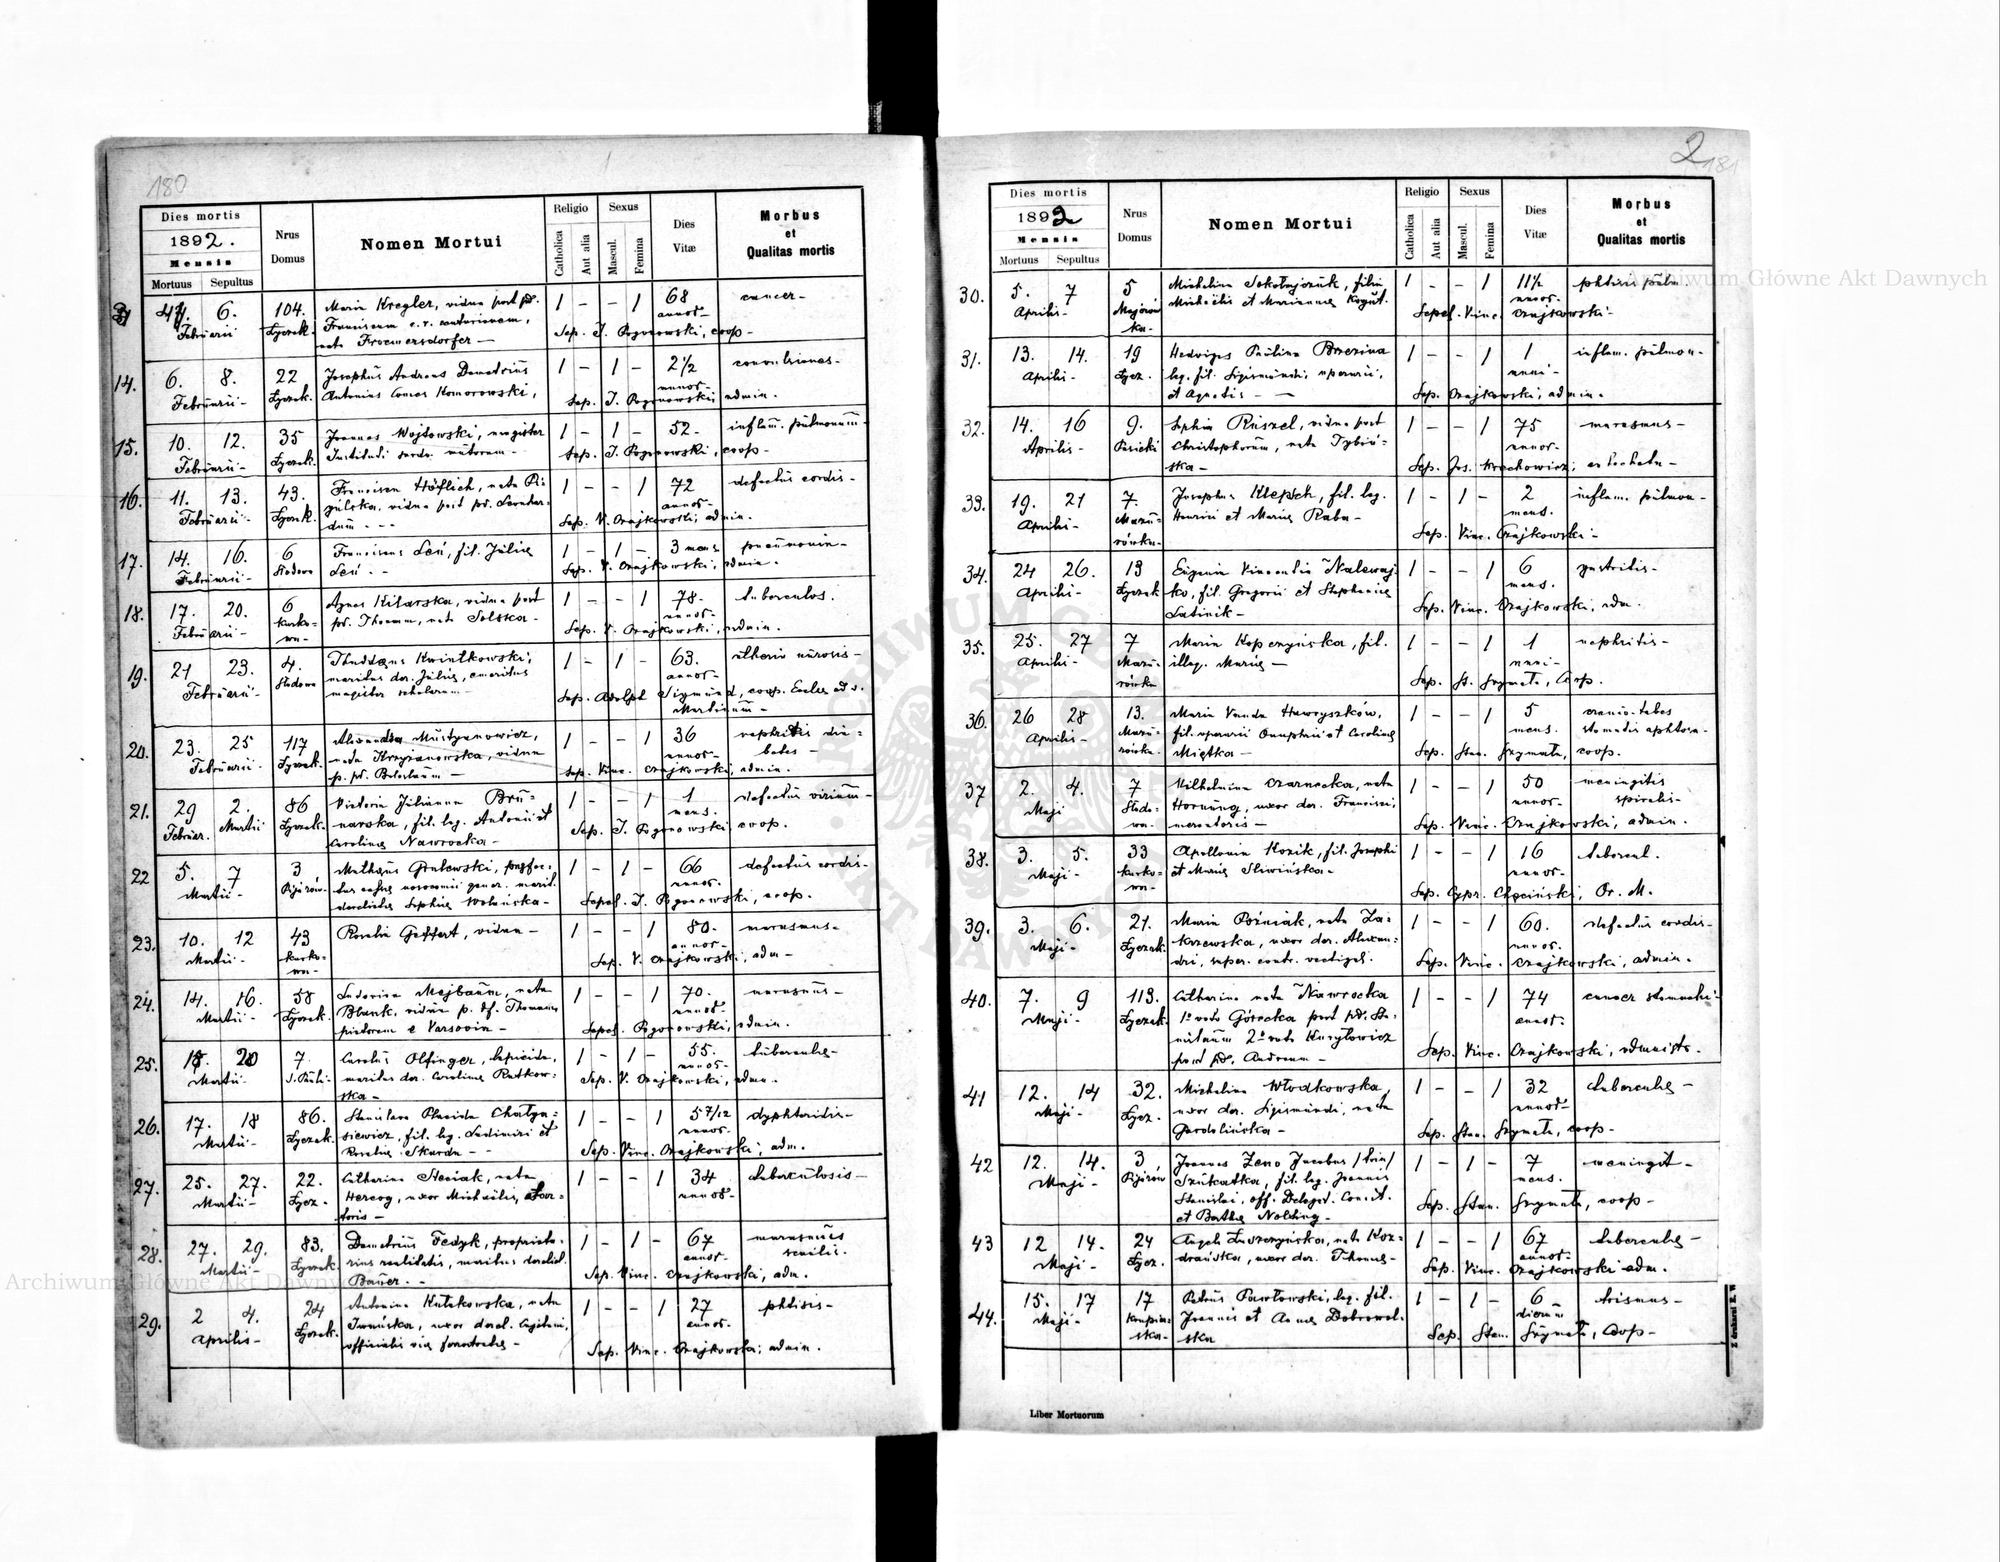 180
Dies mortis
1892.
Mensis
Mortuus Sepultus
Nrus
Domus
Nomen Mortui
Religio
Catholica
Aut alia
Sexus
Mascul.
Femina
Dies
Vitæ
Morbus
et
Qualitas mortis
6. 104. Maria Kregler, vidua post pd. 1 - - 1 68 cancer -
Februarii Łyczak. Franciscum c. r. centurionem, annor -
nata Froemersdorfer - Sep. J. Pogonowski, coop -
14. 6. 8. 22 Josephus Andreas Demetrius 1 - 1 - 2 1/2 convulsiones -
Februarii - Łyczak. Antonius comes Komorowski, annor -
Sep. J. Pogonowski, admin.
15. 10. 12. 35 Joannes Wojtowski, magister 1 - 1 - 52 - inflam. pulmonum -
Februarii - Łyczak. Instituti surdo mutorum - Sep. J. Pogonowski, coop -
16. 11. 13. 43. Francisca Höflich, nata 1 - - 1 72 defectus cordis -
Februarii - Łyczak. vidua post pd. annor -
Sep. V. Czajkowski, admin.
17. 14. 16. 6 Franciscus Leń, fil. Juliae 1 - 1 - 3 mens pneumonia -
Februarii - Słodowa Leń. - - Sep. V. Czajkowski, admin -
18. 17. 20. 6 Agnes Kilarska, vidua post 1 - - 1 78 - tuberculos.
Februarii - Kurko- pd. Thomam, nata Solska - annor -
wa - Sep. V. Czajkowski, admin.
19. 21 23. 4. Thaddaeus Kwiatkowski, 1 - 1 - 63. -
Februarii - Słodowa maritus der. Juliae, emeritus annor -
magister scholarum - Sep. Adolph Sigmund, coop. Eccles ad s.
Martinum -
20. 23. 25 117 Alexandra Mustyanowicz, 1 - - 1 36 nephritis dia-
Februarii Łyczak. nata Krzyżanowska, vidua annor - betes -
p. pd. - Sep. Vinc. Czajkowski, admin.
21. 29 2. 86 Victoria Julianna Bru- 1 - - 1 1 defectus virium -
Februar. Martii Łyczak. narska, fil. leg. Antonii et mens.
Carolinae Nawrocka - Sep. J. Pogonowski coop.
22 5. 7 3 Mathaeus Gralewski, 1 - 1 - 66 defectus cordis -
Martii - Pijarów. gener. marit. annor.
Sophiae Wolańska - Sepel. J. Pogonowski, coop.
23. 10. 12 43 Rosalia Geffert, vidua - 1 - - 1 80. marasmus -
Martii - Kurko- annor -
wa - Sep. V. Czajkowski, adm -
24. 14. 16. 58 Ludovica Majbaum, nata 1 - - 1 70. marasmus -
Martii - Łyczak. Blank, vidua p. df. Thomam annor -
pictorem e Varsovia - Sepel. Pogonowski, admin.
25. 18. 20 7 Carolus Olfinger, lapicida, 1 - 1 - 55. tubercules -
Martii - maritus der. Carolinae Rutkow- annor -
ska - Sep. V. Czajkowski, admn.
26. 17. 18 86. Stanislava Placida 1 - - 1 5 7/12 dyphteritis -
Martii - Łyczak. siewicz, fil. leg. Ladimiri et annor -
Rosaliae Skarda - - Sep. Vinc. Czajkowski, adm.
27. 25. 27. 22. Catharina Steciak, nata 1 - - 1 34 tuberculosis -
Martii - Łycz - Herzog, uxor Michaelis, annor -
28. 27. 29. 83. Demetrius Fedyk, proprieta- 1 - 1 - 67 marasmus
Martii - Łyczak. rius realitatis, maritus annor - senilis.
Bauer. - - Sep. Vinc. Czajkowski, adm.
29. 2 4. 24 Antonina Kułakowska, nata 1 - - 1 27 phtisis -
Aprilis - Łyczak. uxor annor -
officialis viae ferratae - Sep. Vinc. Czajkowski, admin.
2
181
Dies mortis
1892
Mensis
Mortuus Sepultus
Nrus
Domus
Nomen Mortui
Religio
Catholica
Aut alia
Sexus
Mascul.
Femina
Dies
Vitæ
Morbus
et
Qualitas mortis
30. 5. 7 5 Michalina Sokołajczuk, filia 1 - - 1 11 1/2 phtisis pulm.
Aprilis - Majerów- Michaelis et Mariannae Kogut. annor.
ka - Sepel. Vinc. Czajkowski -
31. 13. 14. 19 Hedviges Paulina Brzezina 1 - - 1 1 inflam. pulmon -
Aprilis - Łycz. leg. fil. Sigismundi, operarii, anni -
et Agnetis - - Sep. Czajkowski, admin.
32. 14. 16 9. Sophia Ruszel, vidua post 1 - - 1 75 marasmus -
Aprilis - Pasieki Christophorum, nata annor -
ska - Sep. Jos. Krechowicz, ex
33. 19. 21 7. Josephus Klepsch, fil. leg. 1 - 1 - 2 inflam. pulmon -
Aprilis - Mazu- Henrici et Mariae Raba - mens.
rówka - Sep. Vinc. Czajkowski -
34. 24 26. 13 Eugenia Vincentia Nalewaj- 1 - - 1 6 gastritis -
Aprilis - Łyczak ko, fil. Gregorii et Stephaniae mens.
Latinik - Sep. Vinc. Czajkowski, adm.
35. 25. 27 7 Maria Kopczyńska, fil. 1 - - 1 1 nephritis -
Aprilis - Mazu- illeg. Mariae - anni -
rówka Sep. St. Szymała, Coop.
36. 26 28 13. Maria Vanda Hawryszków, 1 - - 1 5 cranio-tabes
Aprilis - Mazu- fil. operarii Onuphrii et Carolinae mens. stomatis aphtosa -
rówka - Miętka - Sep. Stan. Szymała, coop.
37 2. 4. 7 Wilhelmina Czarnecka, nata 1 - - 1 50 meningitis
Maji Słodo- Hornung, uxor der. Francisci, annor - spinalis -
wa - mercatoris - Sep. Vinc. Czajkowski, admin.
38. 3. 5. 33 Apollonia Kozik, fil. Josephi 1 - - 1 16 tubercul.
Maji - Kurko- et Mariae Śliwińska - annor -
wa - Sep. Cypr. Chęciński, Or. M.
39. 3. 6. 21. Maria Poźniak, nata Za- 1 - - 1 60. defectus cordis -
Maji - Łyczak. krzewska, uxor der. Alexan- annor.
dri, super. contr. vectigal. Sep. Vinc. Czajkowski, admin.
40. 7. 9 113. Catharina nata Nawrocka 1 - - 1 74 cancer stomachi -
Maji - Łyczak. 1° voto Górecka post pd. annor -
2° voto Kuryłowicz
post pd. Andream - Sep. Vinc. Czajkowski, administr.
41 12. 14 32. Michalina Włodkowska, 1 - - 1 32 tubercules -
Maji - Łycz. uxor der. Sigismundi, nata annor -
Gardolińska - Sep. Stan. Szymała, coop -
42 12. 14. 3, Joannes Zeno Jacobus 1 - 1 - 7 meningit -
Maji - Pijarów Szukatka, fil. leg. Joannis mens.
Stanislai, off. Deleget. Concist. Sep. Stan. Szymała, coop -
et Berthae Nolding -
43 12 14. 24 Angela nata Koz- 1 - - 1 67 tubercules -
Maji - Łycz. drańska, uxor der. Thomae - annor -
Sep. Vinc. Czajkowski adm.
44. 15. 17 17 Petrus Pawłowski, leg. fil. 1 - 1 - 6 trismus -
Maji - Joannis et Annae Dobrowol- dierum
ska - ska Sep. Stan. Szymała, Coop -
Liber Mortuorum
Z drukarni E. W
Archiwum Główne Akt Dawnych
Archiwum Główne Akt Dawnych
ARCHIWUM GŁÓWNE AKT DAWNYCH